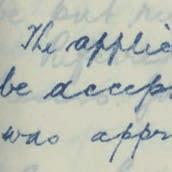 The applic
be accep
was appr